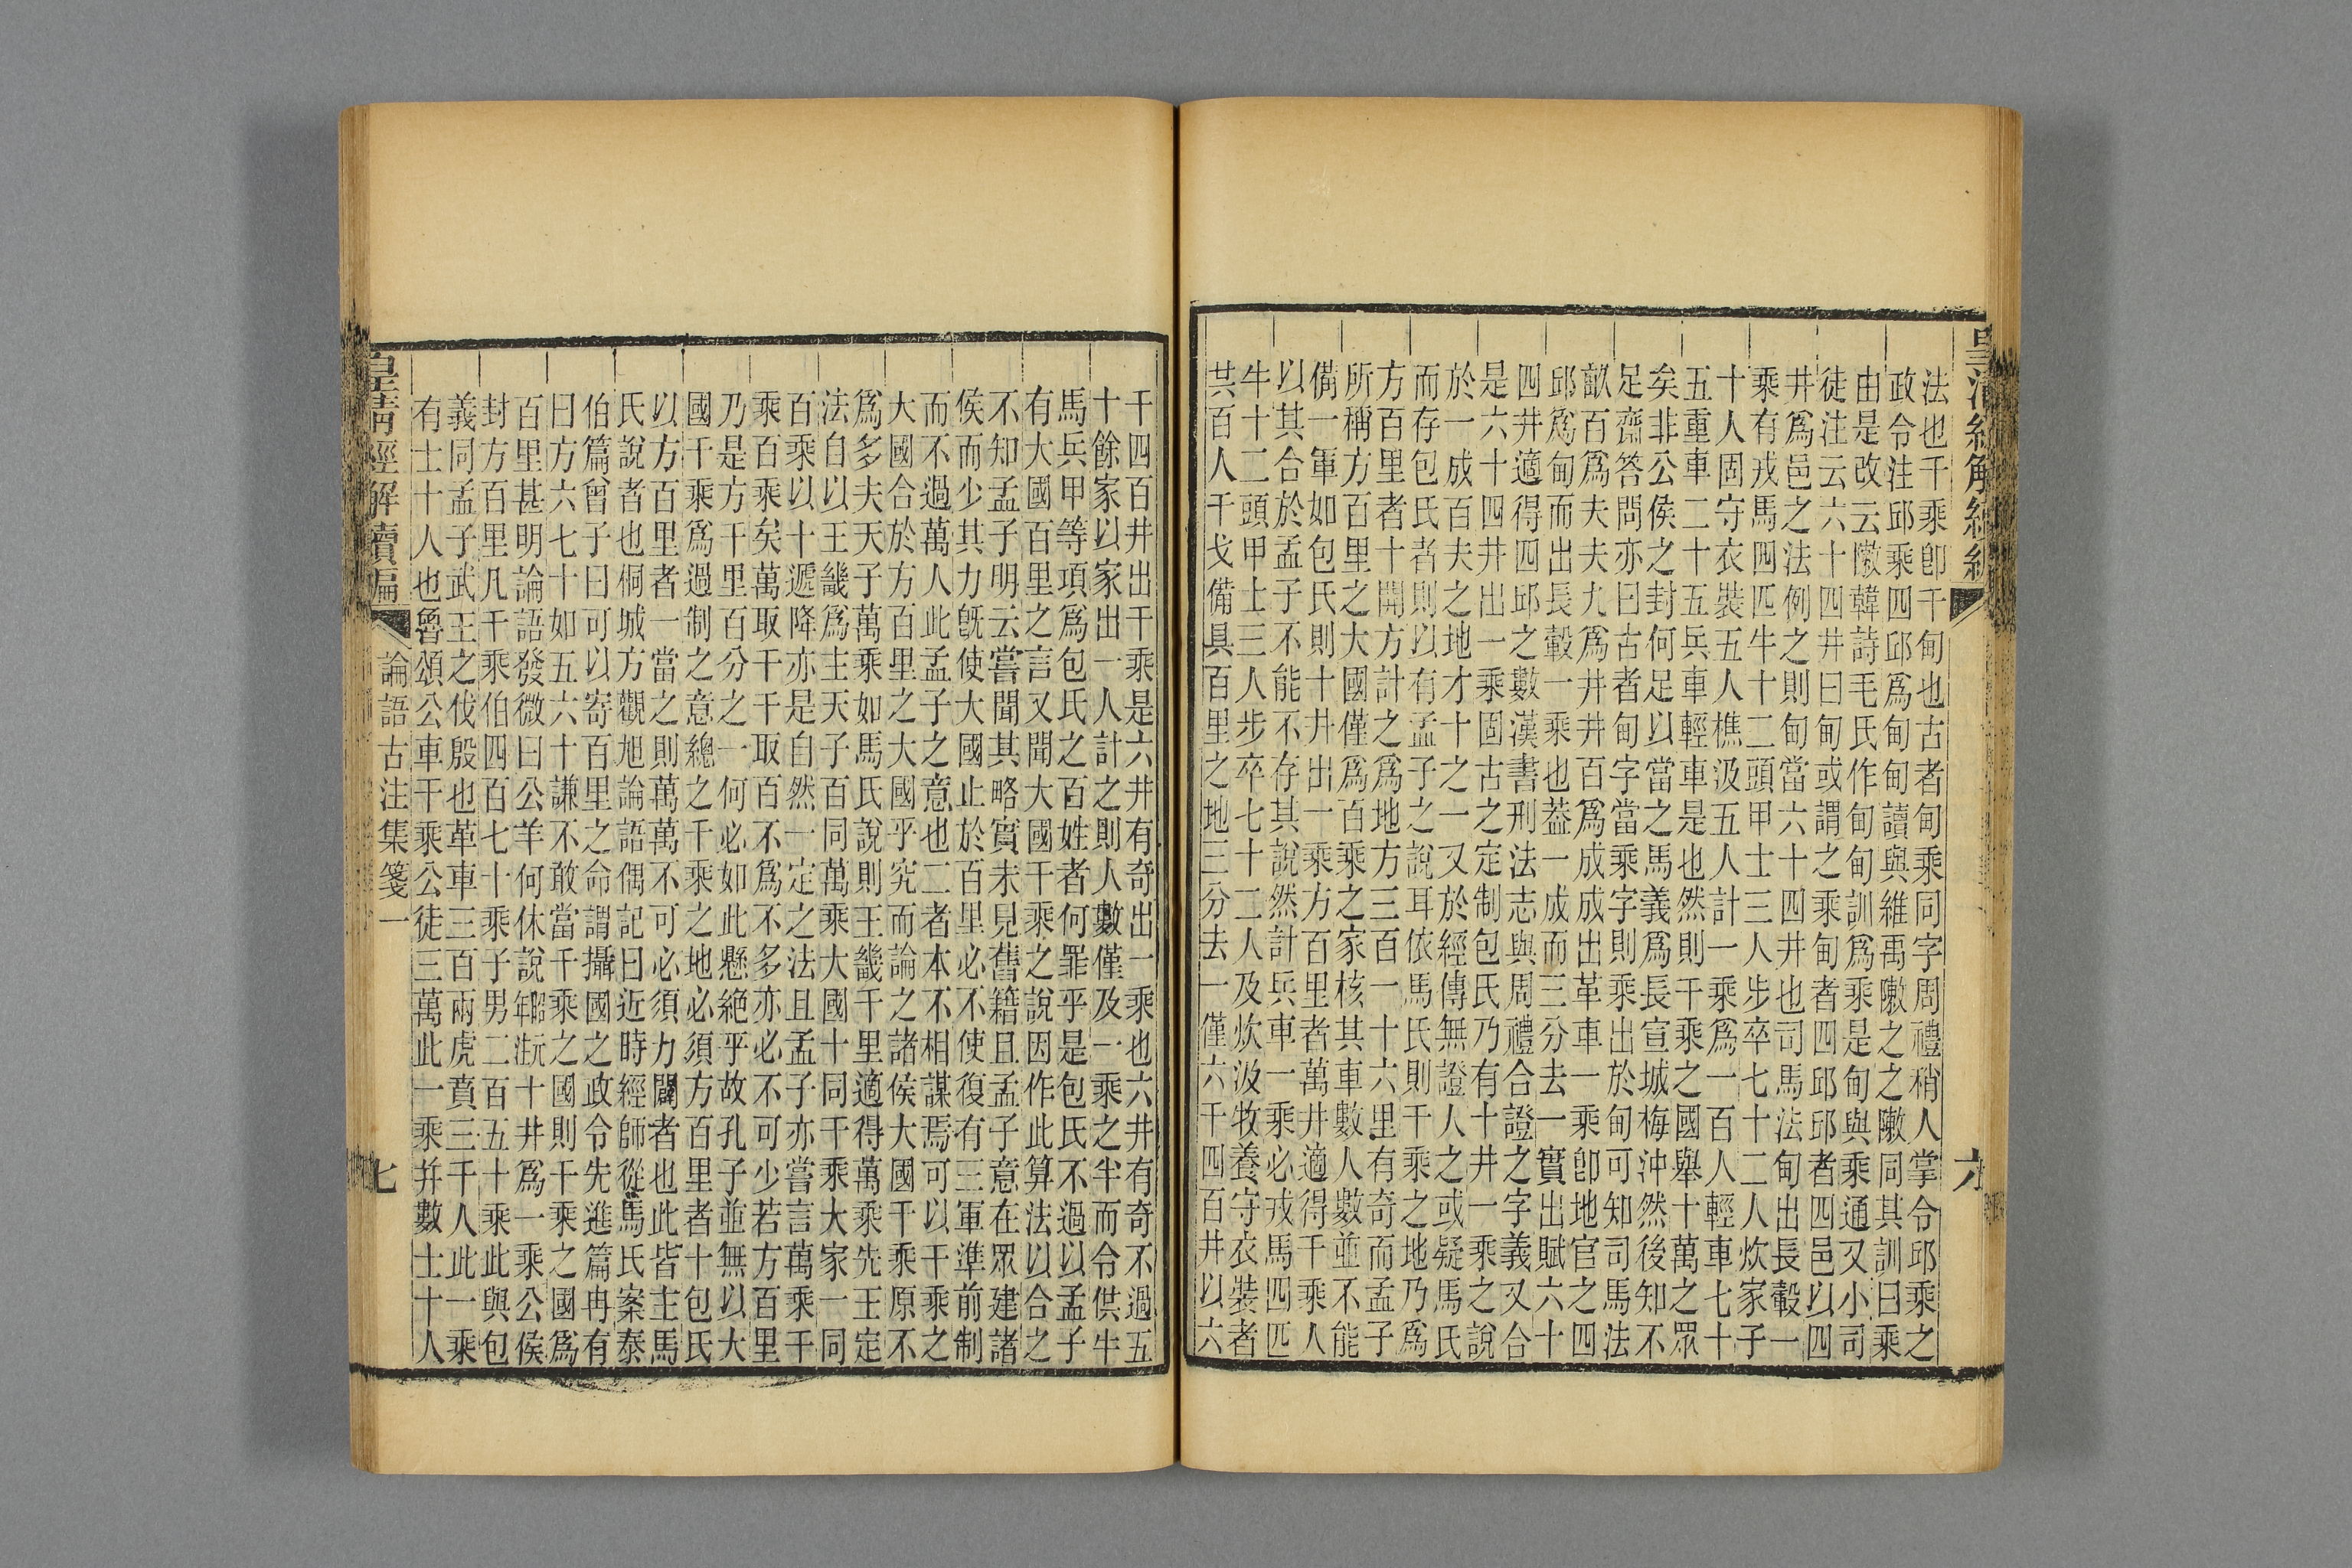 法也千乘卽千甸也古者甸乘同字周禮稍人掌令邱乘之
政令注邱乘四邱爲甸甸讀與維禹敶之之敶同其訓曰乘
由是改云敶韓詩毛氏作甸甸訓爲乘是甸與乘通又小司
徒注云六十四井曰甸或謂之乘甸者四邱邱者四邑以四
井爲邑之法例之則甸當六十四井也司馬法甸出長轂一
乘有戎馬四匹牛十二頭甲士三人步卒七十二人炊家子
十人固守衣裝五人樵汲五人計一乘爲一百人輕車七十
五重車二十五兵車輕車是也然則千乘之國舉十萬之眾
矣非公侯之封何足以當之馬義爲長宣城梅沖然後知不
足齋答問亦曰古者甸字當乘字則乘出於甸可知司馬法
畝百爲夫夫九爲井井百爲成成出革車一乘卽地官之四
邱爲甸而出長轂一乘也葢一成而三分去一實出賦六十
四井適得四邱之數漢書刑法志與周禮合證之字義又合
是六十四井出一乘固古之定制包氏乃有十井一乘之說
於一成百夫之地才十之一又於經傳無證人之或疑馬氏
而存包氏者則以有孟子之說耳依馬氏則千乘之地乃爲
方百里者十開方計之爲地方三百一十六里有奇而孟子
所稱方百里之大國僅爲百乘之家核其車數人數並不能
備一軍如包氏則十井出一乘方百里者萬井適得千乘人
以其合於孟子不能不存其說然計兵車一乘必戎馬四匹
牛十二頭甲士三人步卒七十二人及炊汲牧養守衣裝者
共百人干戈備具百里之地三分去一僅六千四百井以六
皇清經解續編
六
千四百井出千乘是六井有奇出一乘也六井有奇不過五
十餘家以家出一人計之則人數僅及一乘之半而令供牛
馬兵甲等項爲包氏之百姓者何罪乎是包氏不過以孟子
有大國百里之言又聞大國千乘之說因作此算法以合之
不知孟子明云嘗聞其略實未見舊籍且孟子意在眾建諸
侯而少其力旣使大國止於百里必不使復有三軍準前制
而不過萬人此孟子之意也二者本不相謀焉可以千乘之
大國合於方百里之大國乎究而論之諸侯大國千乘原不
爲多夫天子萬乘如馬氏說則王畿千里適得萬乘先王定
法自以王畿爲主天子百同萬乘大國十同千乘大家一同
百乘以十遞降亦是自然一定之法且孟子亦嘗言萬乘千
乘百乘矣萬取千千取百不爲不多亦必不可少若方百里
乃是方千里百分之一何必如此懸絕乎故孔子並無以大
國千乘爲過制之意總之千乘之地必須方百里者十包氏
以方百里者一當之則萬萬不可必須力闢者也此皆主馬
氏說者也侗城方觀旭論語偶記曰近時經師從馬氏案泰
伯篇曾子曰可以寄百里之命謂攝國之政令先進篇冉有
曰方六七十如五六十謙不敢當千乘之國則千乘之國爲
百里甚明論語發微曰公羊何休說昭元年注十井爲一乘公侯
封方百里凡千乘伯四百七十乘子男二百五十乘此與包
義同孟子武王之伐殷也革車三百兩虎賁三千人此一乘
有士十人也魯頌公車千乘公徒三萬此一乘幷數士十人
皇淸經解續編
論語古注集箋一
七